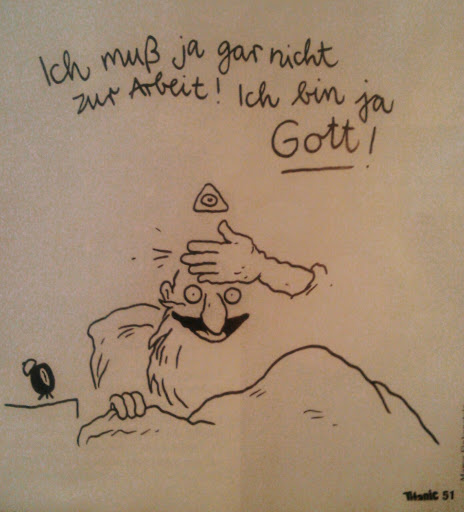 Ich muß ja gar nicht
zur Arbeit! Ich bin ja
Gott!
Titanic 51